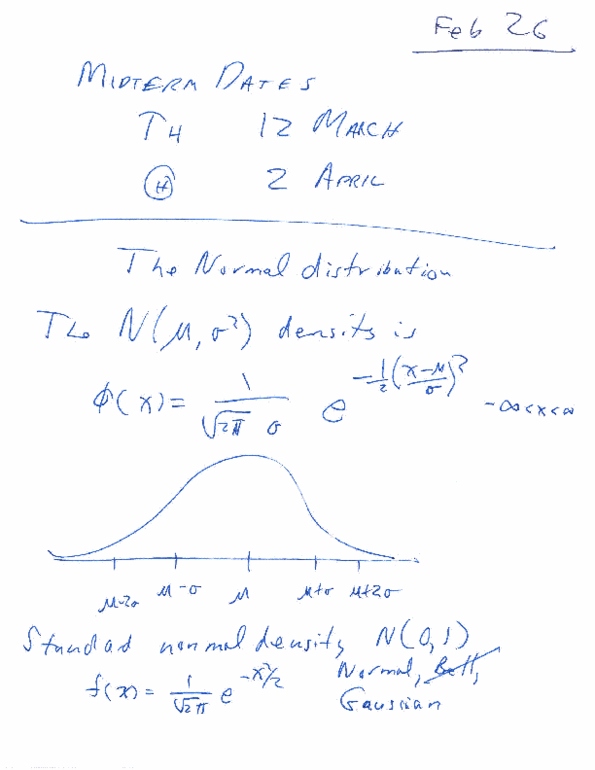 Feb 26
MIDTERM DATES
T4 12 MARCH
Ⓗ 2 APRIL
The Normal distribution
The N(μ, σ²) density is
ϕ(x) = 1/(√2π σ) e^{-1/2((x-μ)/σ)²} -∞<x<∞
μ-2σ μ-σ μ μ+σ μ+2σ
Standad normal density N(0,1)
f(x) = 1/√2π e^{-x²/2} Normal, Bell,
Gaussian